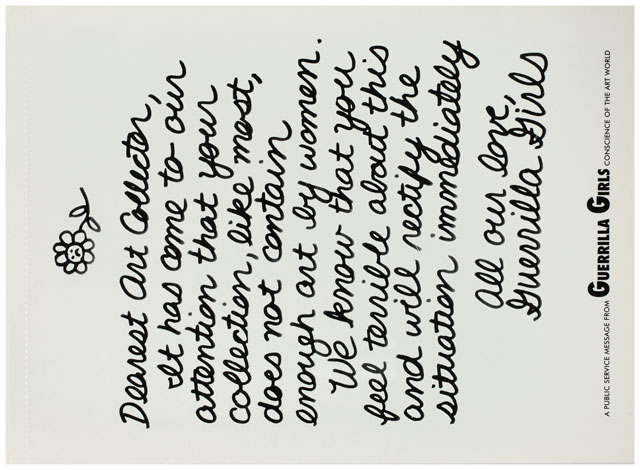 Dearest Art Collector,
It has come to our
attention that your
collection, like most,
does not contain
enough art by women.
We know that you
feel terrible about this
and will rectify the
situation immediately
All our love,
Guerrilla Girls
A PUBLIC SERVICE MESSAGE FROM GUERRILLA GIRLS CONSCIENCE OF THE ART WORLD